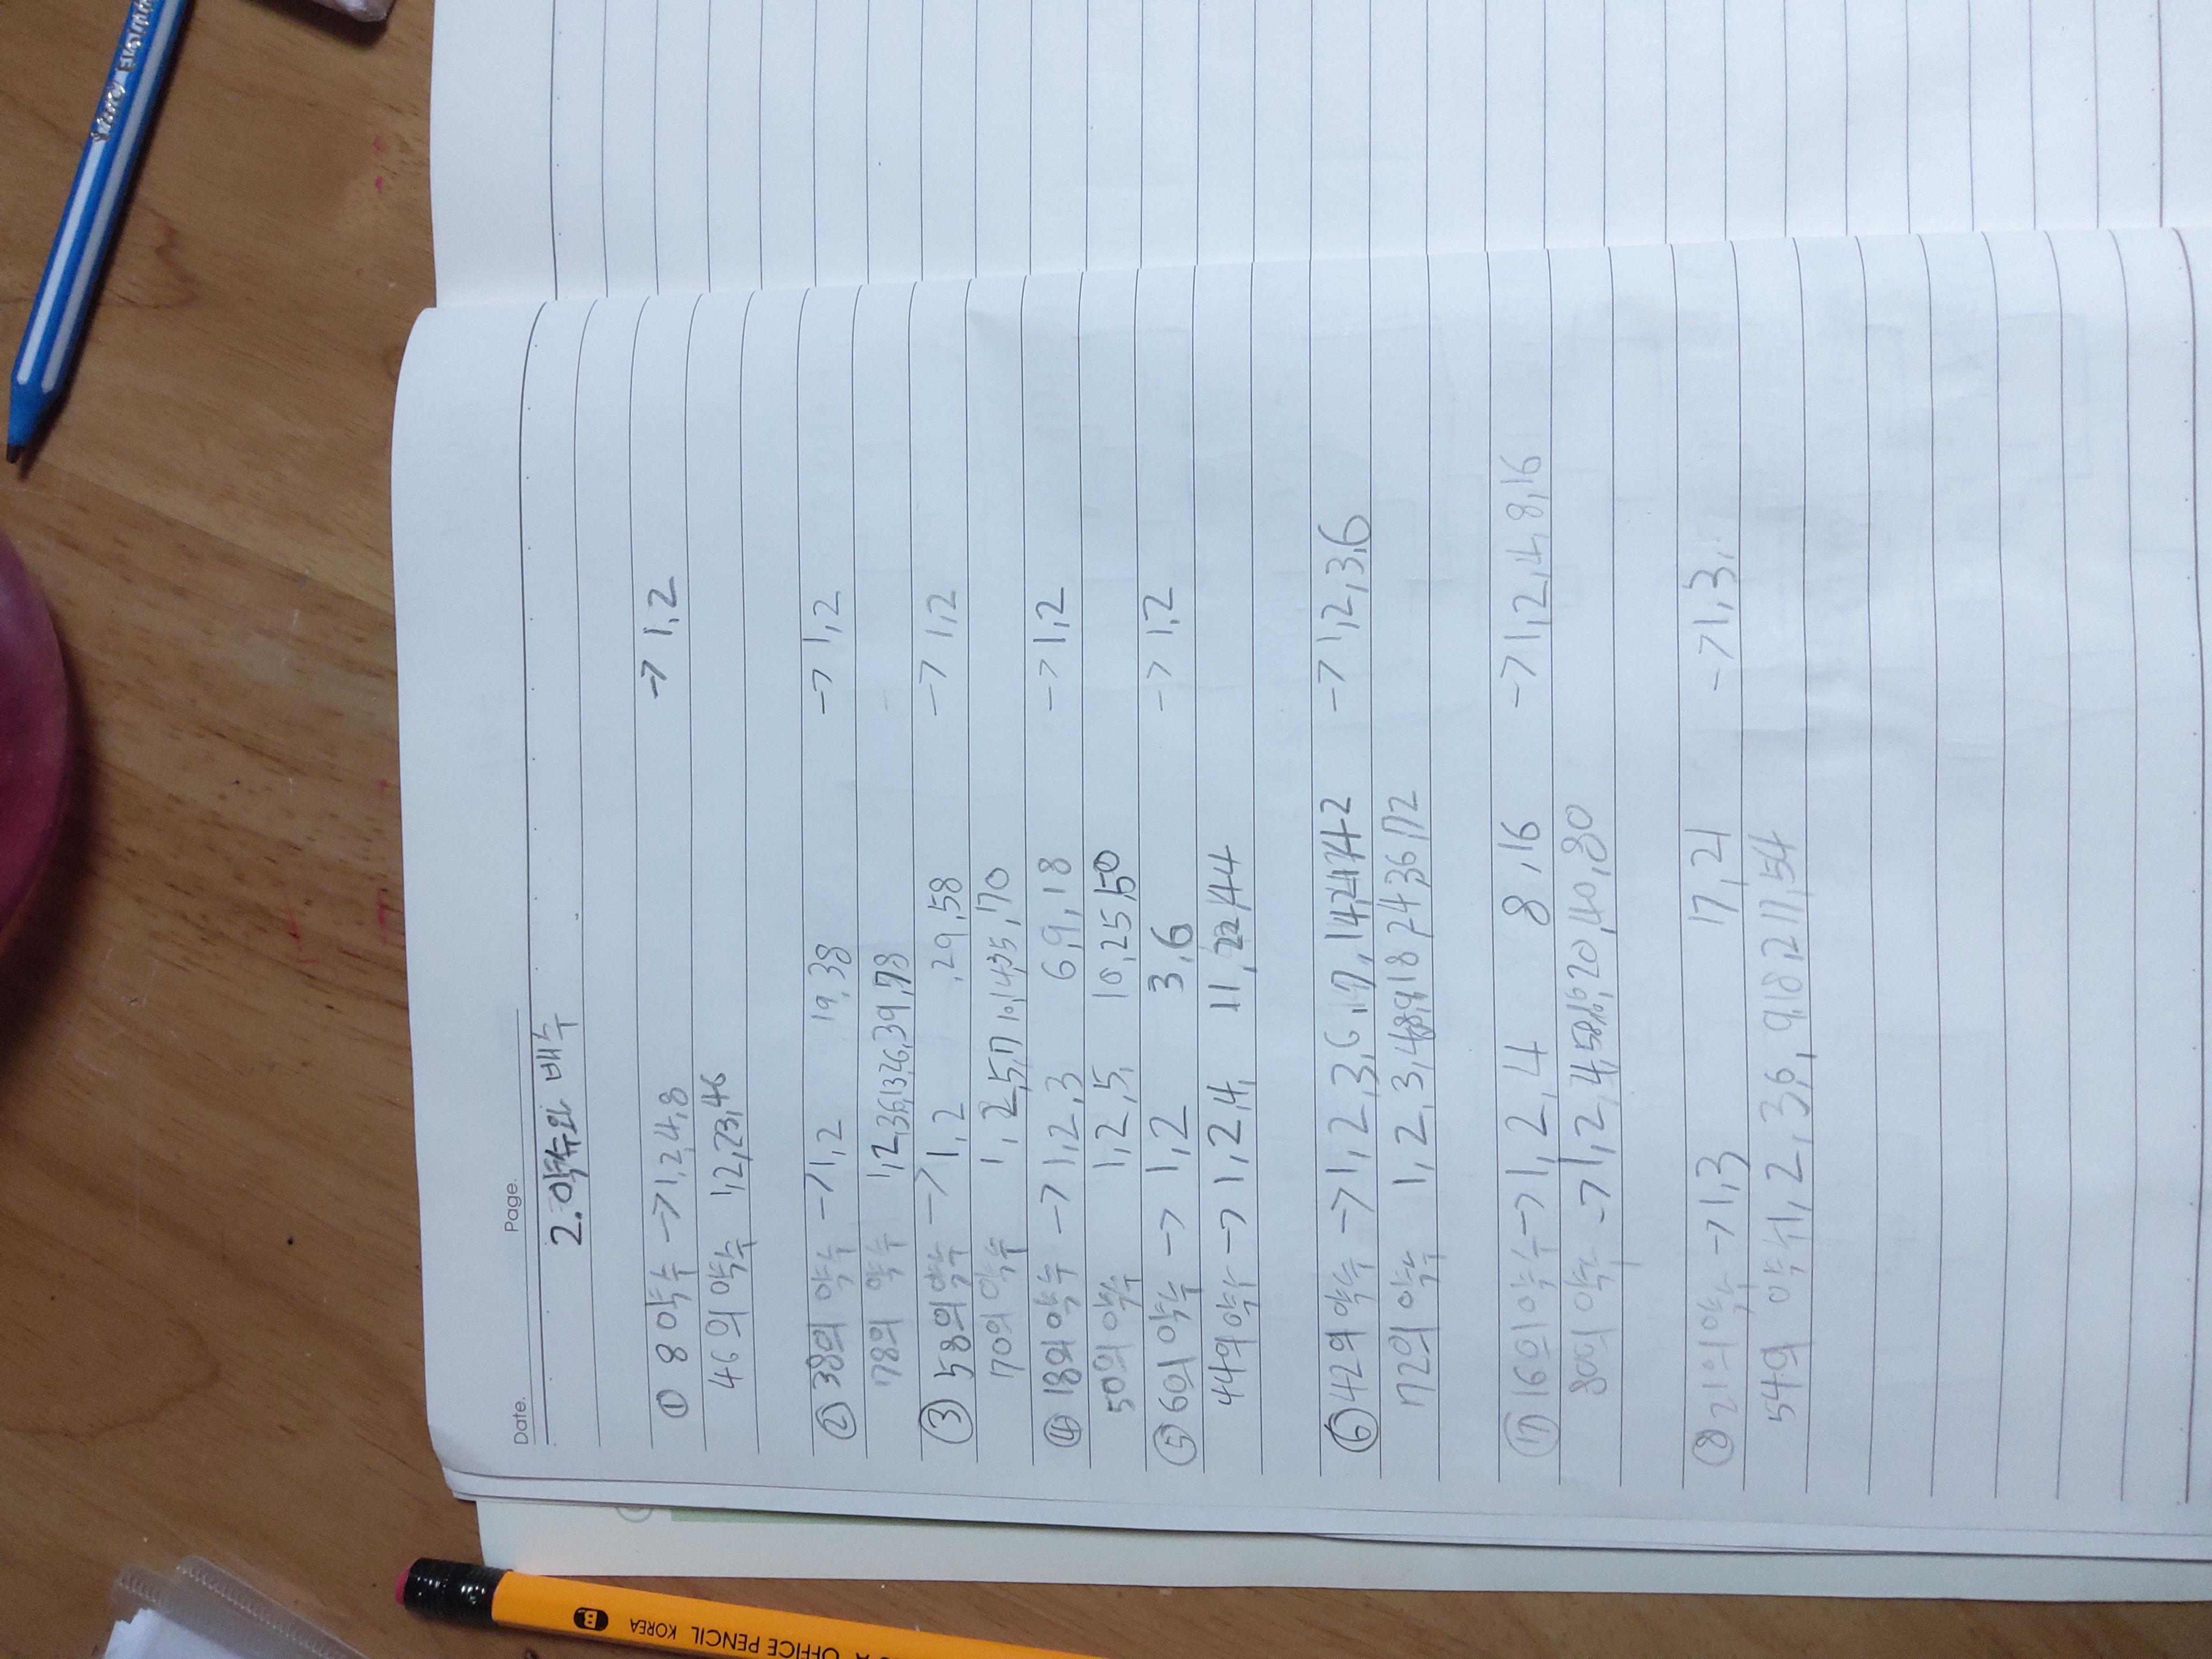 Date. Page.
2. 약수와 배수
① 8 약수 → 1,2,4,8 → 1,2
46의 약수 1,2,23,46
② 38의 약수 → 1,2 19,38 → 1,2
78의 약수 1,2,3,6,13,26,39,78
③ 58의 약수 → 1,2 ,29,58 → 1,2
70의 약수 1,2,5,7 10,14,35,70
④ 18의 약수 → 1,2,3 6,9,18 → 1,2
50의 약수 1,2,5, 10,25,50
⑤ 6의 약수 → 1,2 3,6 → 1,2
44의 약수 → 1,2,4, 11,22,44
⑥ 42의 약수 → 1,2,3,6,7,14,21,42 → 1,2,3,6
72의 약수 1,2,3,4,8,9,18,24,36,72
⑦ 16의 약수 → 1,2,4 8,16 → 1,2,4,8,16
80의 약수 → 1,2,4,5,8,10,16,20,40,80
⑧ 21의 약수 → 1,3 7,21 → 1,3,
54의 약수 1,2,3,6, 9,18,27,54
OFFICE PENCIL KOREA B